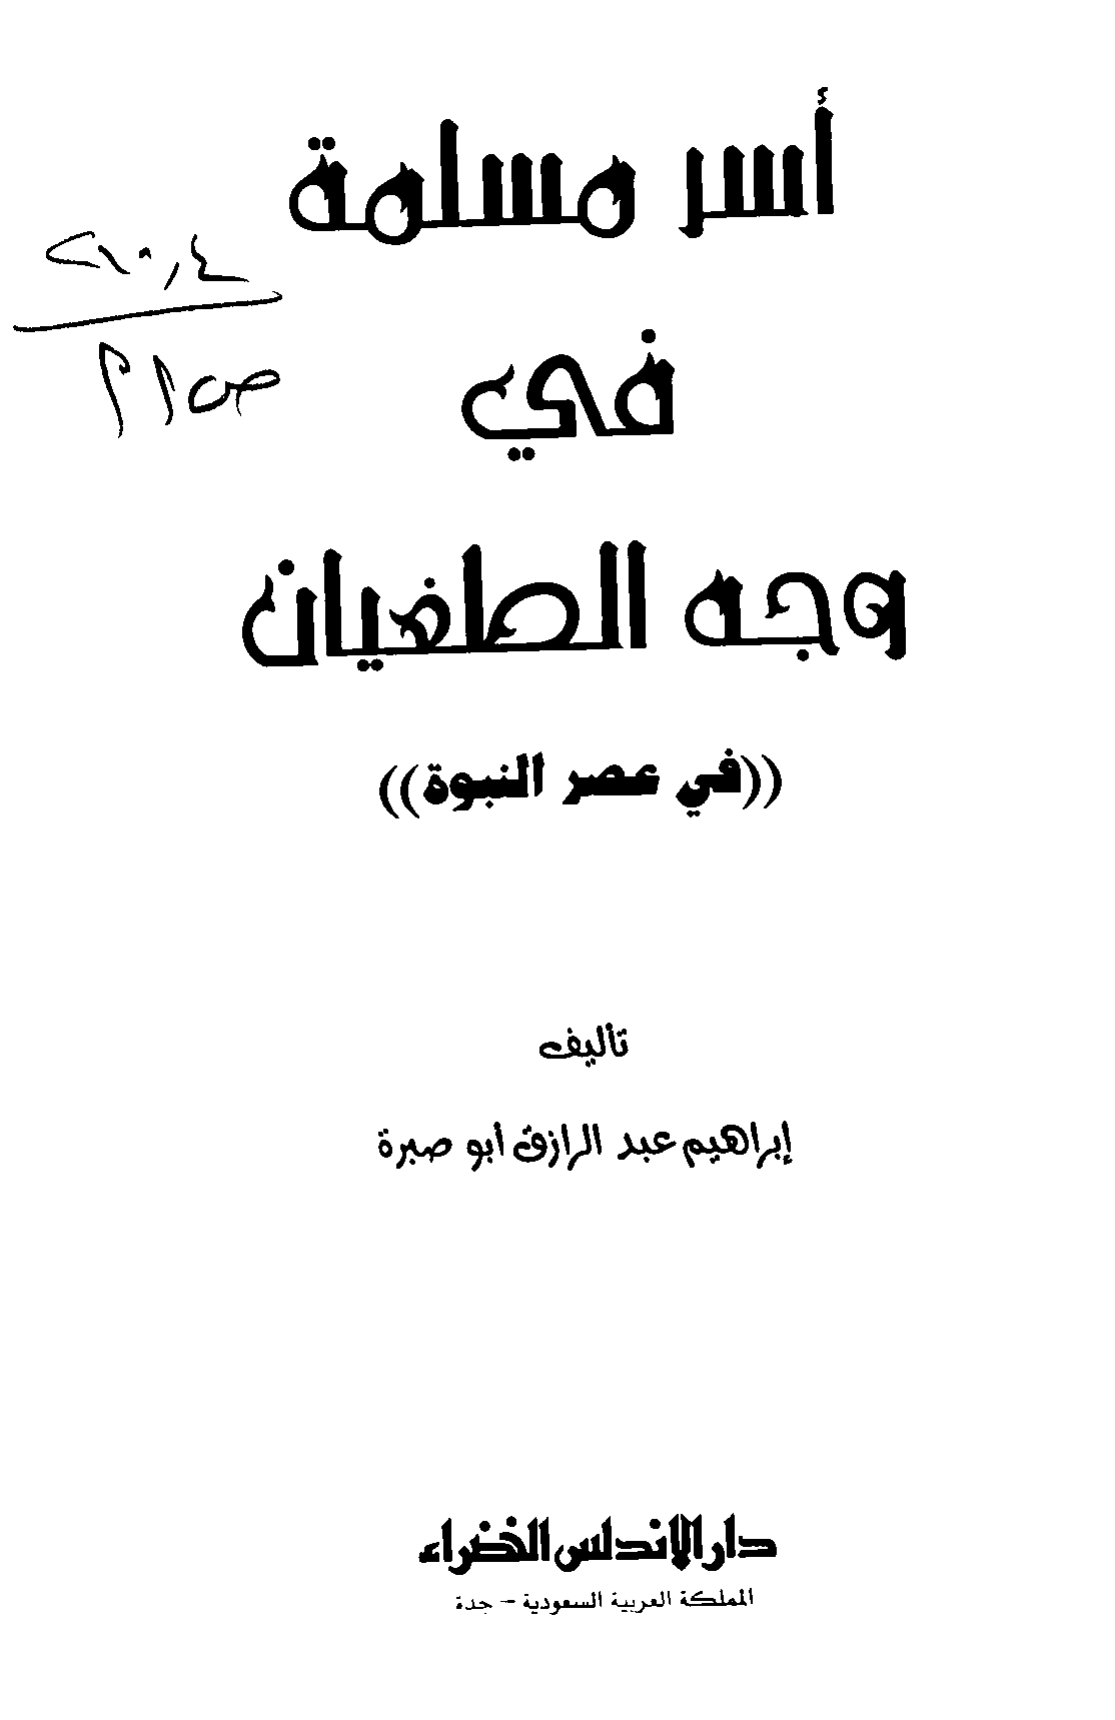 أسر مسلمة
في
وجه الطغيان
((في عصر النبوة))
تأليف
إبراهيم عبد الرازق أبو صبرة
دار الاندلس الخضراء
المملكة العربية السعودية - جدة